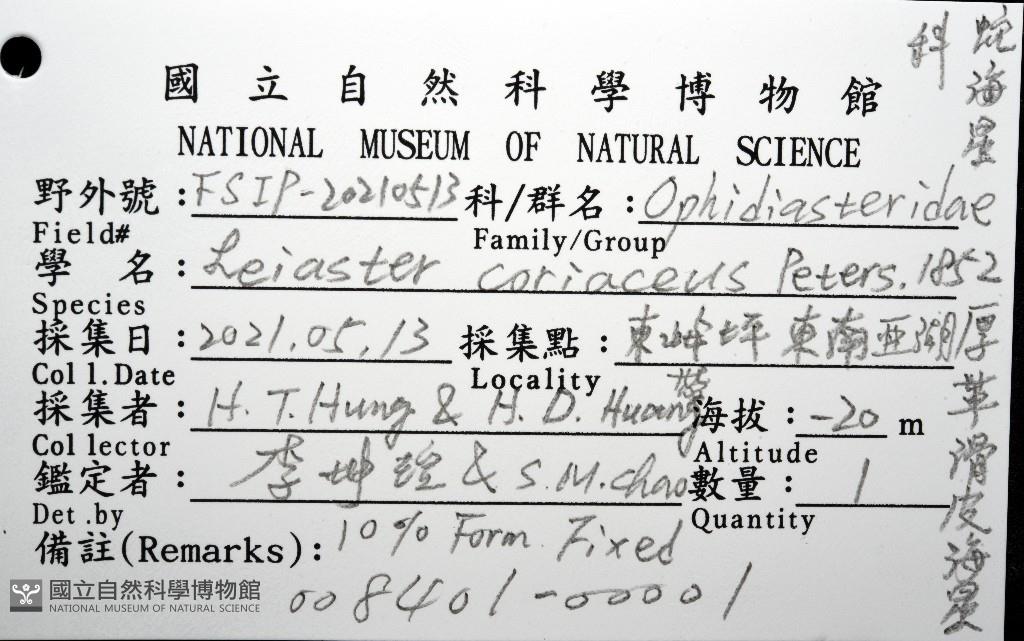 國立自然科學博物館
NATIONAL MUSEUM OF NATURAL SCIENCE
野外號:FSIP-20210513 科/群名:Ophidiasteridae
Field# Family/Group
學名:Leiaster coriaceus Peters.1852
Species
採集日:2021.05.13 採集點:東嶼坪東南亞湖
Coll.Date Locality
採集者:H.T.Hung & H.D.Huang 海拔:-20 m
Collector Altitude
鑑定者:李坤瑄 & S.M.Chao 數量:1
Det.by Quantity
備註(Remarks):10% Form Fixed
008401-00001
蛇海星科
厚革滑皮海星
國立自然科學博物館
NATIONAL MUSEUM OF NATURAL SCIENCE